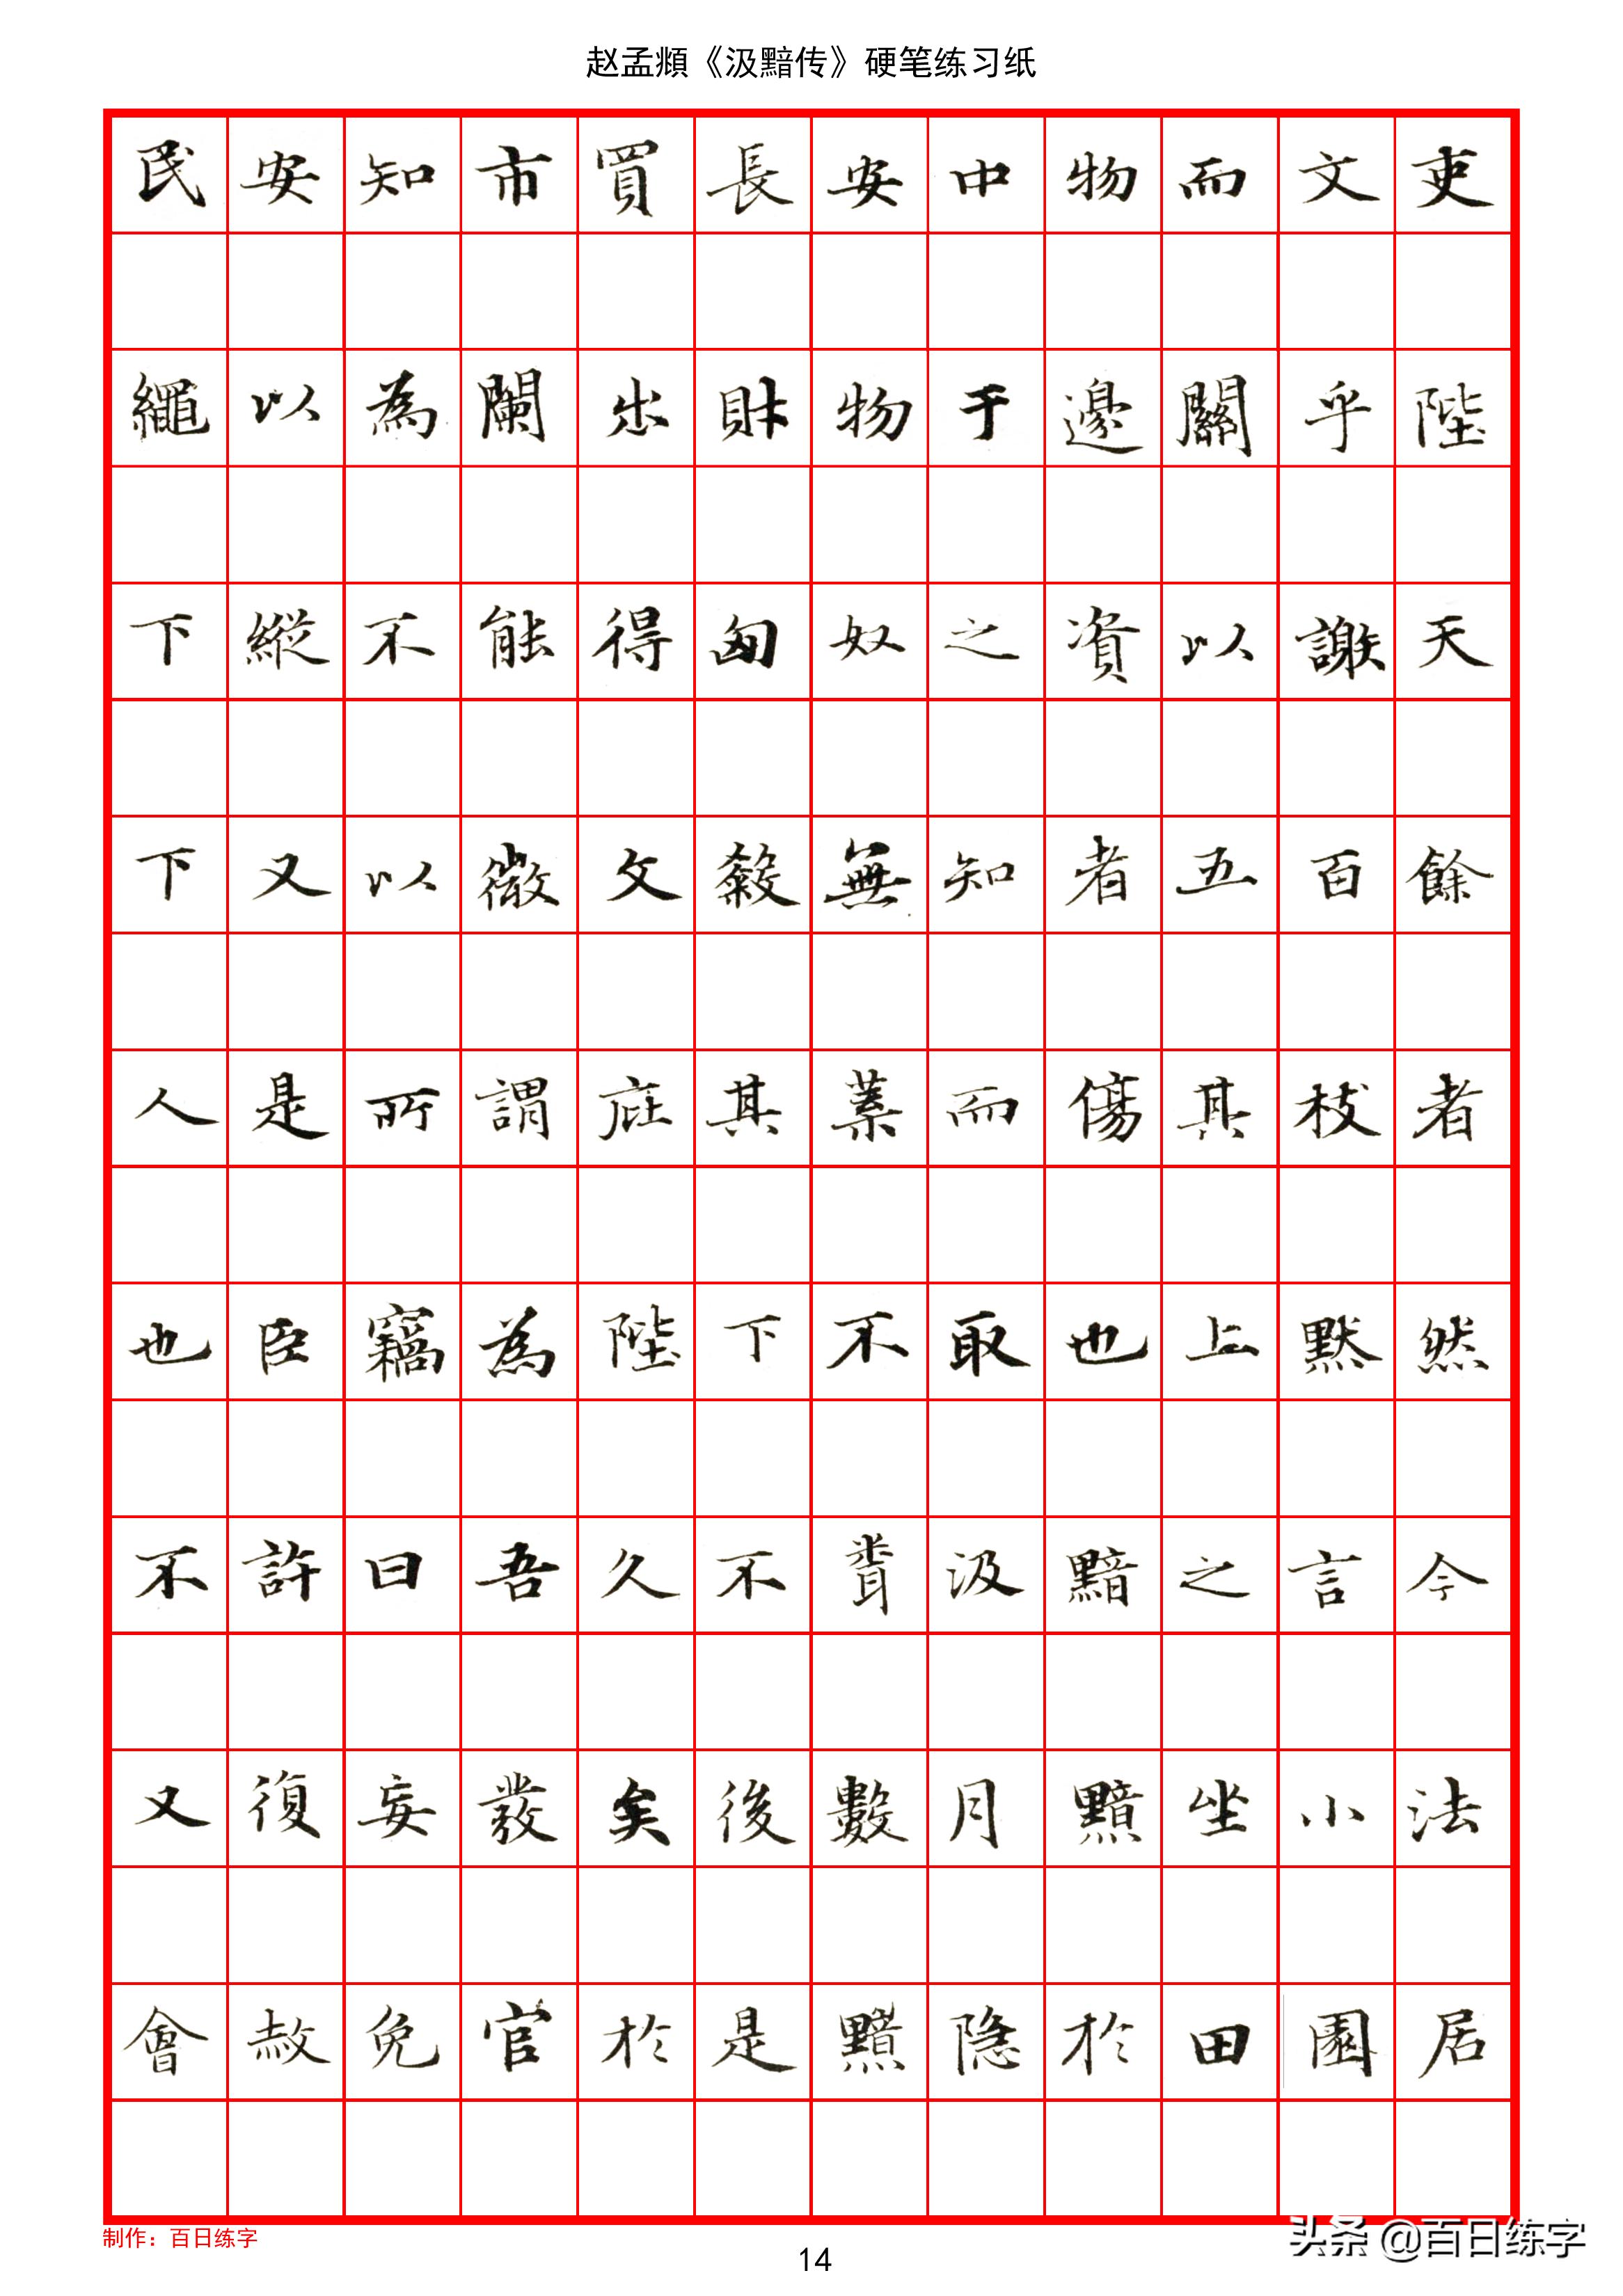 赵孟頫《汲黯传》硬笔练习纸
民安知市買長安中物而文吏
繩以為闌出財物于邊關乎陛
下縱不能得匈奴之資以謝天
下又以微文殺無知者五百餘
人是所謂庇其葉而傷其枝者
也臣竊為陛下不取也上默然
不許曰吾久不聞汲黯之言今
又復妄發矣後數月黯坐小法
會赦免官於是黯隐於田園居
制作：百日练字
头条 @百日练字
14